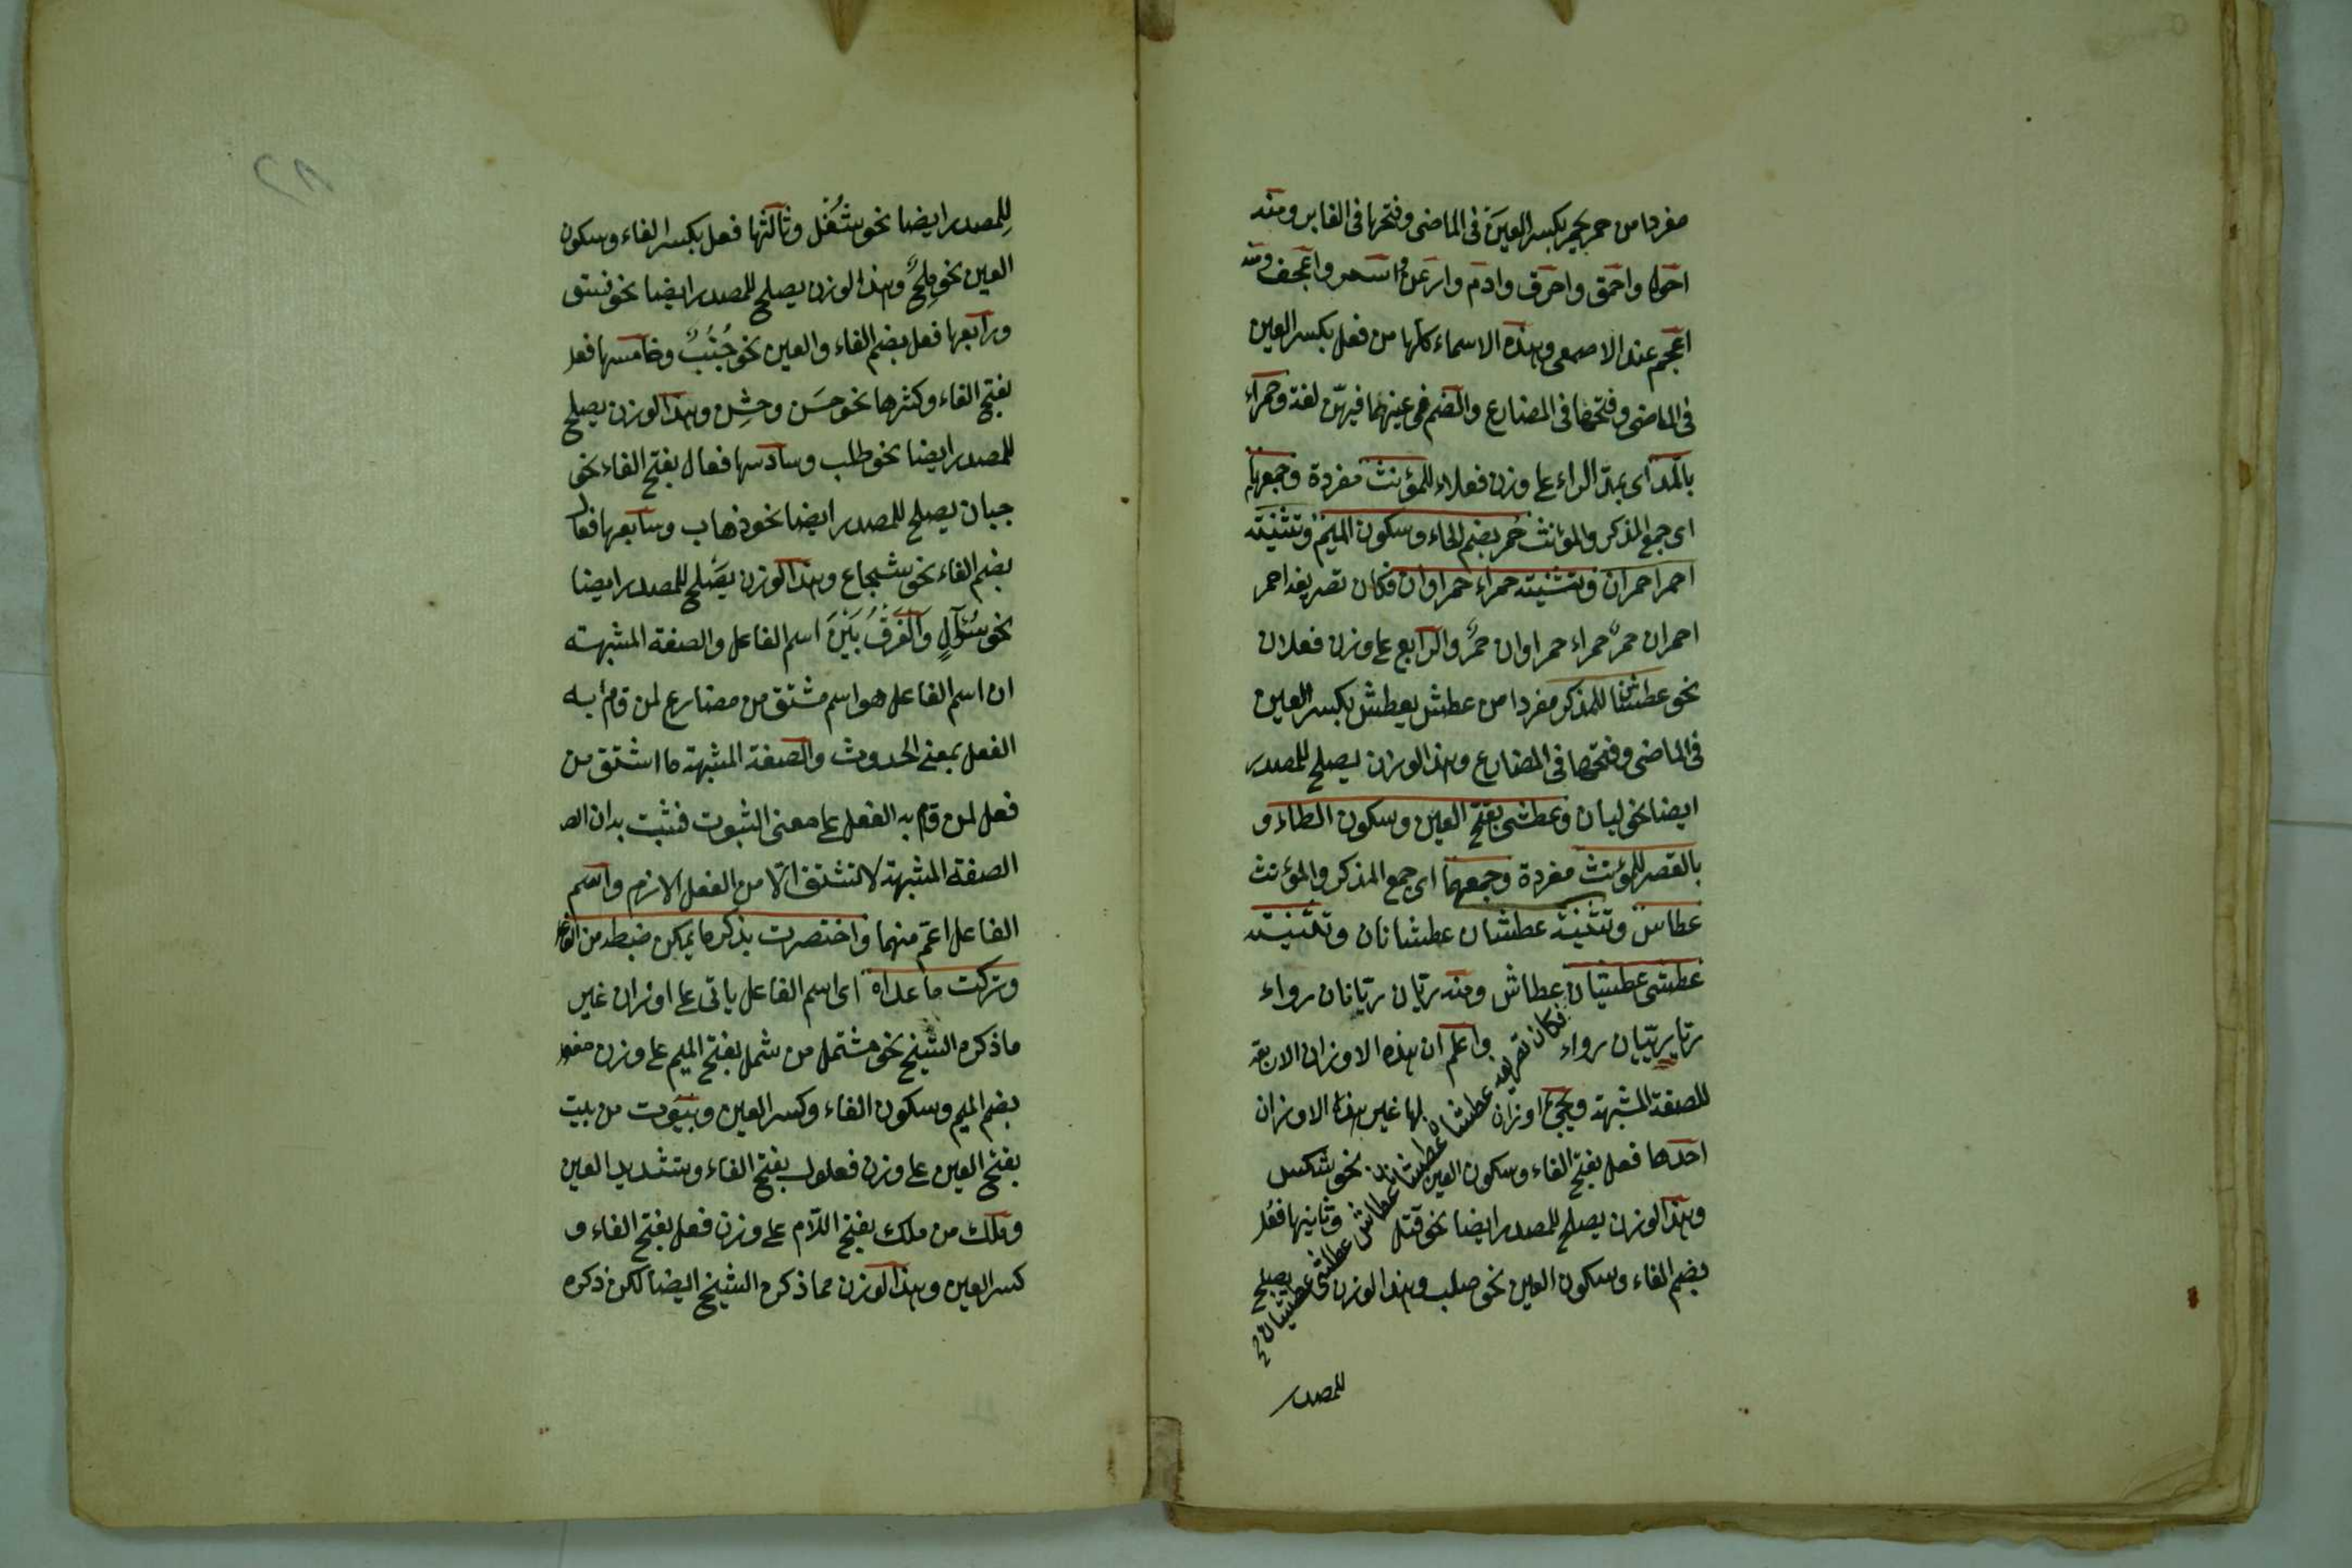 مفردا من حمر يحمر بكسر العين فى الماضى وفتحها فى الغابر ومنه
احول واحمق واخرق وادم وارعن واسمر واعجف ومنه
اعجم عند الاصمعى وهذه الاسماء كلها من فعل بكسر العين
فى الماضى وفتحها فى المضارع والضم فى عينهما فيهن لغة وحمراء
بالمد اى بمد الراء على وزن فعلاء للمؤنث مفردة وجمعهما
اى جمع المذكر والمؤنث حُمر بضم الحاء وسكون الميم وتثنية
احمر احمران وتثنية حمراء حمراوان فكان تصريفه احمر
احمران حمرٌ حمراء حمراوان حمرٌ والرابع على وزن فعلان
نحو عطشان للمذكر مفردا من عطش يعطش بكسر العين
فى الماضى وفتحها فى المضارع وهذا الوزن يصلح للمصدر
ايضا نحو ليان وعطشى بفتح العين وسكون الطاء و
بالقصر للمؤنث مفردة وجمعهما اى جمع المذكر والمؤنث
عطاش وتثنية عطشان عطشانان وتثنية
عطشى عطشيان عطاش ومنه ريان ريانان رواء
ريا رييان رواء واعلم ان هذه الاوزان الاربعة
فكان تصريفه عطشان عطشانان عطاش عطشى عطشيان
للصفة المشبهة ويجئ اوزان لها غير هذا الاوزان
احدها فعل بفتح الفاء وسكون العين نحو شكس
وهذا الوزن يصلح للمصدر ايضا نحو قتل وثانيها فعُل
بضم الفاء وسكون العين نحو صلب وهذا الوزن يصلح
للمصدر
٢٨
لِلمصدر ايضا نحو شُغْل وثالثها فعل بكسر الفاء وسكون
العين نحو مِلحٌ وهذا الوزن يصلح للمصدر ايضا نحو فسق
ورابعها فعل بضم الفاء والعين نحو جُنُبٌ وخامسها فعل
بفتح الفاء وكثرها نحو حسَن وخشِن وهذا الوزن يصلح
للمصدر ايضا نحو طلب وسادسها فعال بفتح الفاء نحو
جبان يصلح للمصدر ايضا نحو ذهاب وسابعها فعال
بضم الفاء نحو شجاع وهذا الوزن يصلح للمصدر ايضا
نحو سُؤآلٍ والفَرقُ بَيْنَ اسم الفاعل والصفة المشبهة
ان اسم الفاعل هو اسم مشتق من مضارع لمن قام به
الفعل بمعنى الحدوث والصفة المشبهة ما اشتق من
فعل لمن قام به الفعل على معنى الثبوت فثبت بد ان الص
الصفة المشبهة لا تشتق الّا من الفعل الازم واسم
الفاعل اعم منهما واختصرت بذكر ما يمكن ضبطه من الفاعل
وتركت ما عداه اى اسم الفاعل ياتى على اوزان غير
ما ذكره الشيخ نحو مشتمل من شمل بفتح الميم على وزن
بضم الميم وسكون الفاء وكسر العين وبيّوت من بيت
بفتح العين على وزن فعلول بفتح الفاء وبتشديد العين
وملك من ملك بفتح اللّام على وزن فعل بفتح الفاء و
كسر العين وهذا الوزن مما ذكره الشيخ ايضا لكن ذكره